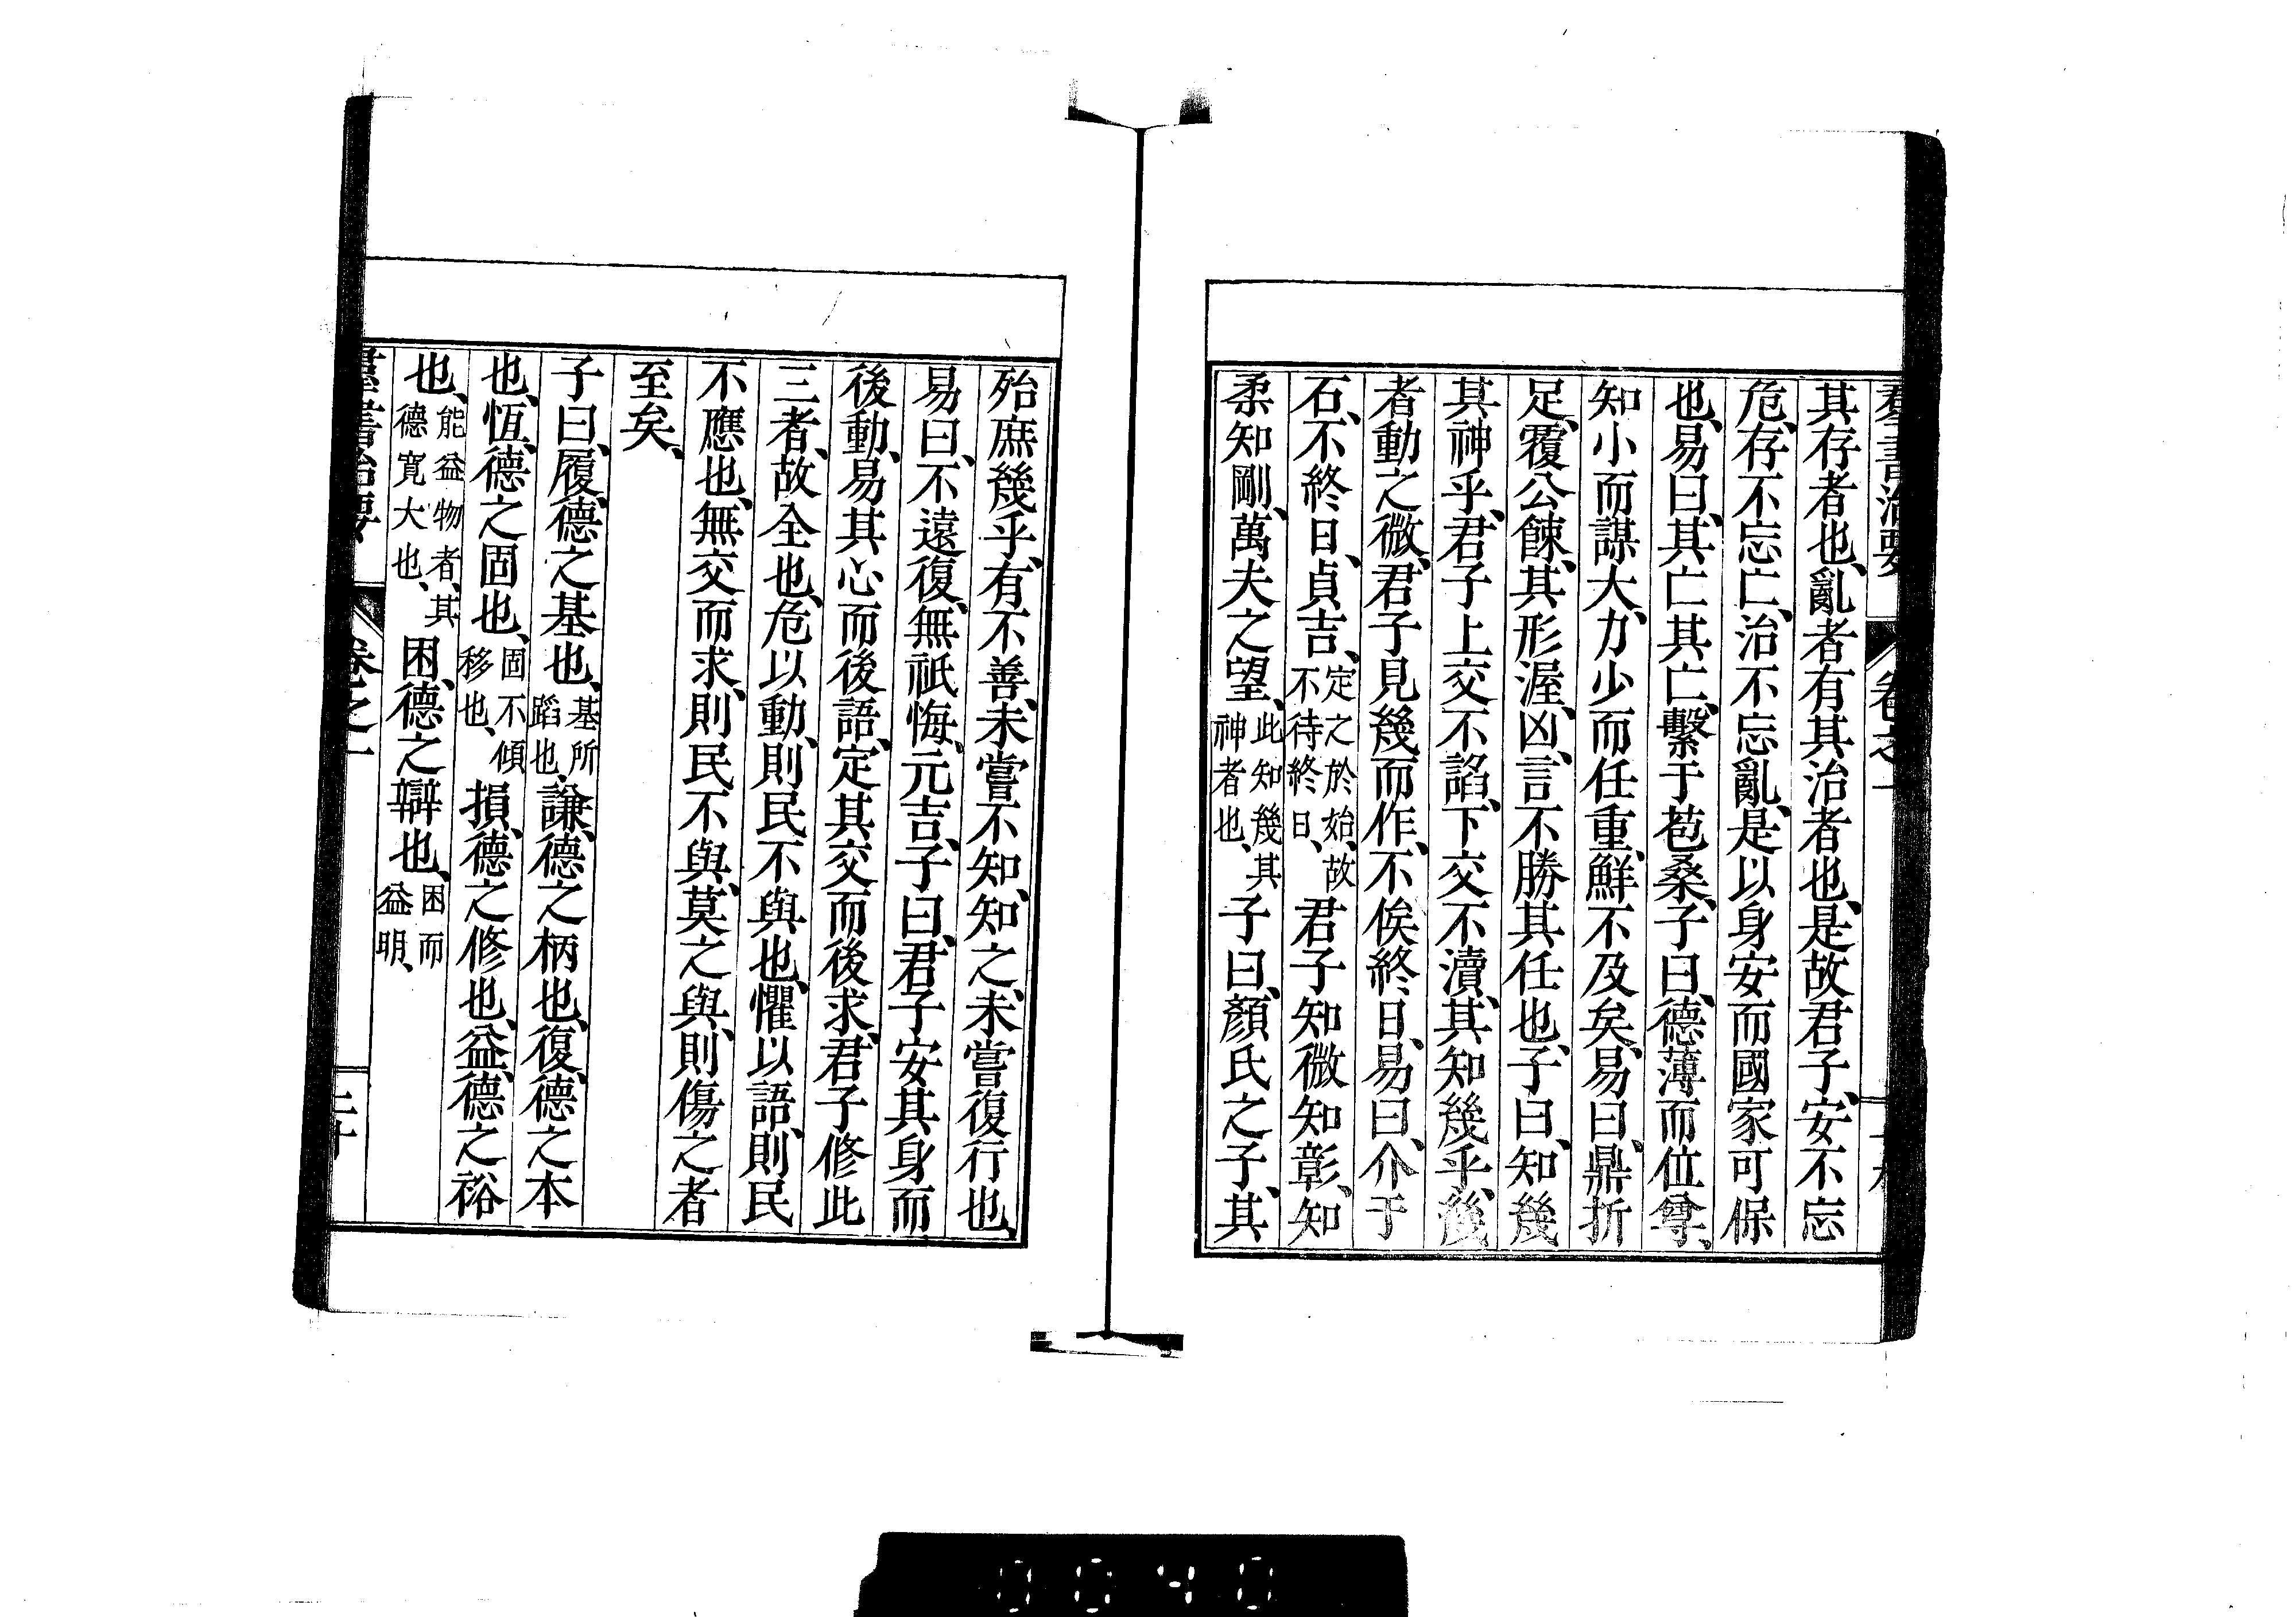 羣書治要 卷之一
其存者也、亂者有其治者也、是故君子、安不忘
危、存不忘亡、治不忘亂、是以身安而國家可保
也、易曰、其亡其亡、繫于苞桑、子曰、德薄而位尊、
知小而謀大、力少而任重、鮮不及矣、易曰、鼎折
足、覆公餗、其形渥、凶、言不勝其任也、子曰、知幾
其神乎、君子上交不諂、下交不瀆、其知幾乎、幾
者動之微、君子見幾而作、不俟終日、易曰、介于
石、不終日、貞吉、定之於始、故不待終日、君子知微知彰、知
柔知剛、萬夫之望、此知幾其神者也、子曰、顏氏之子、其
殆庶幾乎、有不善、未嘗不知、知之、未嘗復行也、
易曰、不遠復、無祇悔、元吉、子曰、君子安其身而
後動、易其心而後語、定其交而後求、君子修此
三者、故全也、危以動、則民不與也、懼以語、則民
不應也、無交而求、則民不與、莫之與、則傷之者
至矣、
子曰、履、德之基也、基所蹈也、謙、德之柄也、復、德之本
也、恆、德之固也、固不傾移也、損、德之修也、益、德之裕
也、能益物者、其德寬大也、困、德之辯也、困而益明、
羣書治要 卷之一 二十
0040